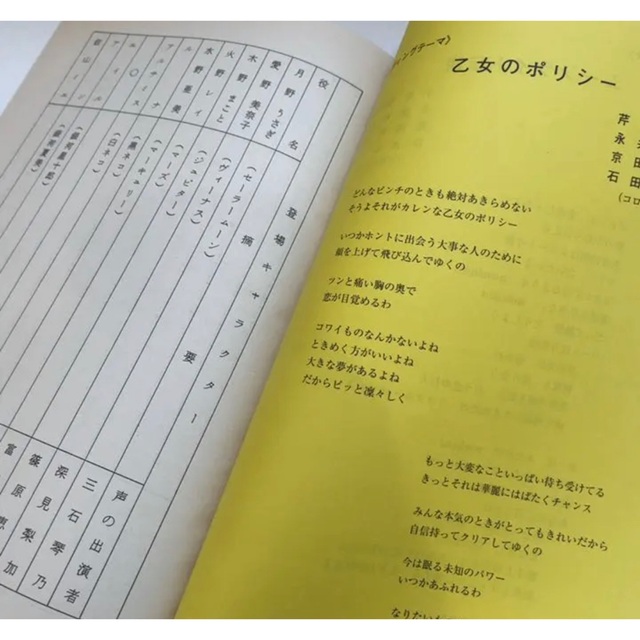 役名
登場キャラクター
摘要
声の出演者
月野うさぎ
（セーラームーン）
三石琴乃
愛野美奈子
（ヴィーナス）
深見梨加
木野まこと
（ジュピター）
篠原恵
火野レイ
（マーズ）
富
水野亜美
（マーキュリー）
（黒ネコ）
（白ネコ）
（銀河星十郎）
（銀河夏美）
ングテーマ〉
乙女のポリシー
芹
永
京田
石田
（コロ
どんなピンチのときも絶対あきらめない
そうよそれがカレンな乙女のポリシー
いつかホントに出会う大事な人のために
顔を上げて飛び込んでゆくの
ツンと痛い胸の奥で
恋が目覚めるわ
コワイものなんかないよね
ときめく方がいいよね
大きな夢があるよね
だからピッと凛々しく
もっと大変なこといっぱい待ち受けてる
きっとそれは華麗にはばたくチャンス
みんな本気のときがとってもきれいだから
自信持ってクリアしてゆくの
今は眠る未知のパワー
いつかあふれるわ
なりたい